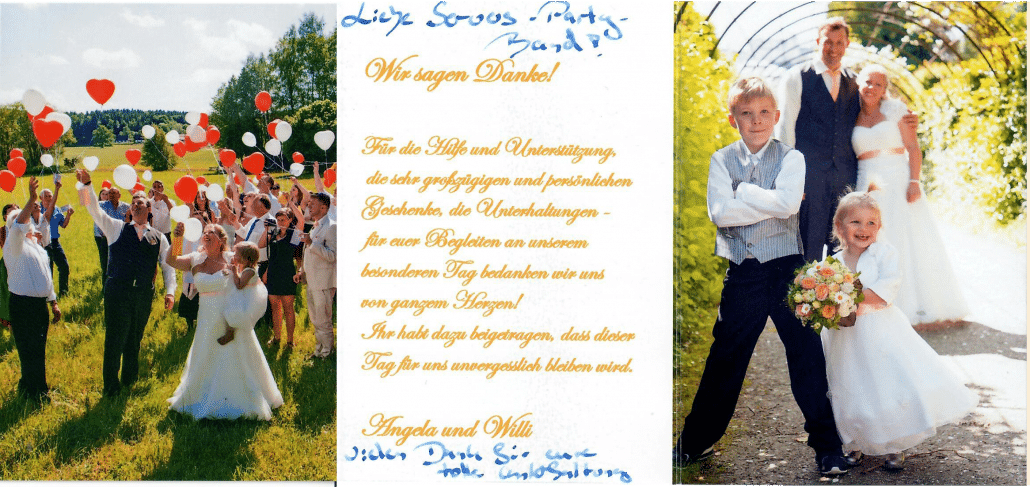 Liebe Soroos-Party-
Band!
Wir sagen Danke!
Für die Hilfe und Unterstützung,
die sehr großzügigen und persönlichen
Geschenke, die Unterhaltungen -
für euer Begleiten an unserem
besonderen Tag bedanken wir uns
von ganzem Herzen!
Ihr habt dazu beigetragen, dass dieser
Tag für uns unvergesslich bleiben wird.
Angela und Willi
vielen Dank für eure
tolle Unterhaltung